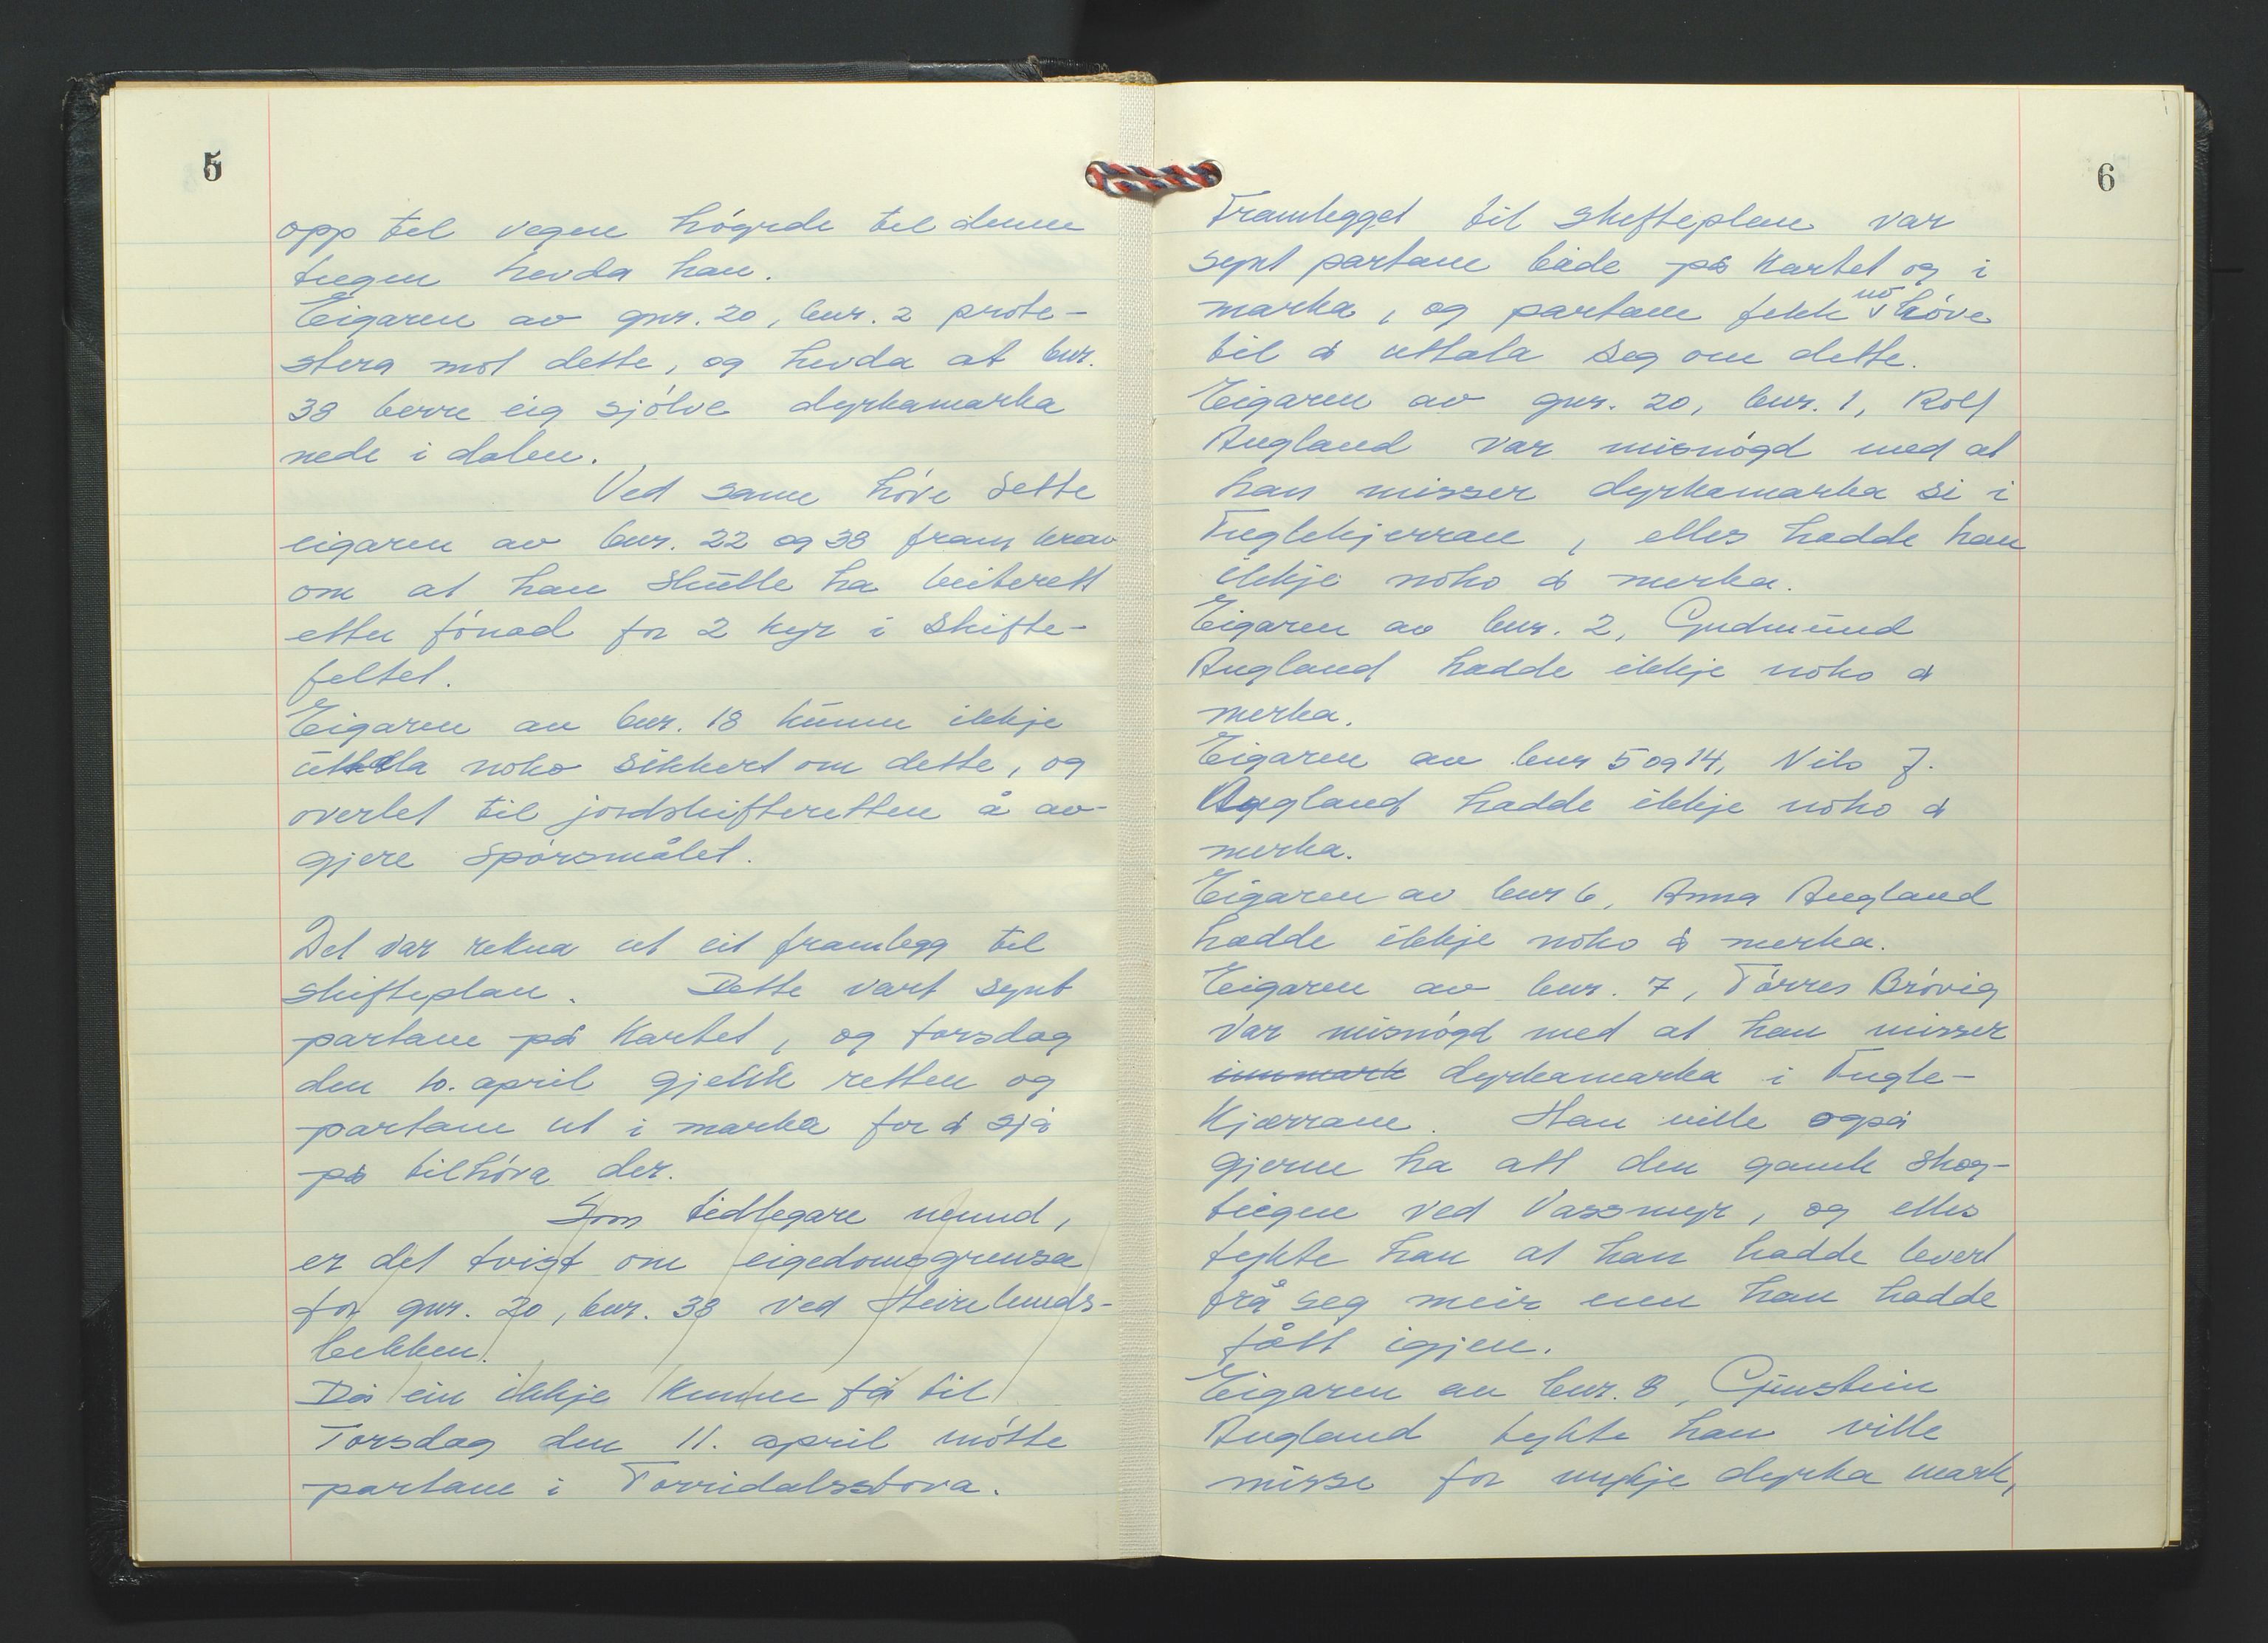 5
opp til vegen høyrde til denne
teigen hevda han.
Eigaren av gnr. 20, bnr. 2 prote-
stera mot dette, og hevda at bnr.
38 berre eig sjølve dyrkamarka
nede i dalen.
Ved same høve sette
eigaren av bnr. 22 og 38 fram krav
om at han skulle ha beiterett
etter fønad for 2 kyr i skifte-
feltet.
Eigaren av bnr. 18 kunne ikkje
uttala noko sikkert om dette, og
overlet til jordskifteretten å av-
gjere spørsmålet.
Det var rekna ut eit framlegg til
skifteplan. Dette vart synt
partane på kartet, og torsdag
den 10. april gjekk retten og
partane ut i marka for å sjå
på tilhøva der.
Som tidlegare nemnd,
er det tvist om eigedomsgrensa
for gnr. 20, bnr. 38 ved
bekken.
Då ein ikkje kunne få til
Torsdag den 11. april møtte
partane i Torridalsstova.
6
Framlegget til skifteplan var
synt partane både på kartet og i
marka, og partane fekk no høve
til å uttala seg om dette.
Eigaren av gnr. 20, bnr. 1, Rolf
Augland var misnøgd med at
han misser dyrkamarka si i
Fuglekjerran, elles hadde han
ikkje noko å merka.
Eigaren av bnr. 2, Gudmund
Augland hadde ikkje noko å
merka.
Eigaren av bnr 5 og 14, Nils J.
Augland hadde ikkje noko å
merka.
Eigaren av bnr 6, Anna Augland
hadde ikkje noko å merka.
Eigaren av bnr. 7, Tørres Brøvig
var misnøgd med at han misser
innmark dyrkamarka i Fugle-
kjærrane. Han ville også
gjerne ha att den gamle skog-
teigen ved Vassmyr, og elles
tykte han at han hadde levert
frå seg meir enn han hadde
fått igjen.
Eigaren av bnr. 8, Gunstein
Augland tykte han ville
misse for mykje dyrka mark,